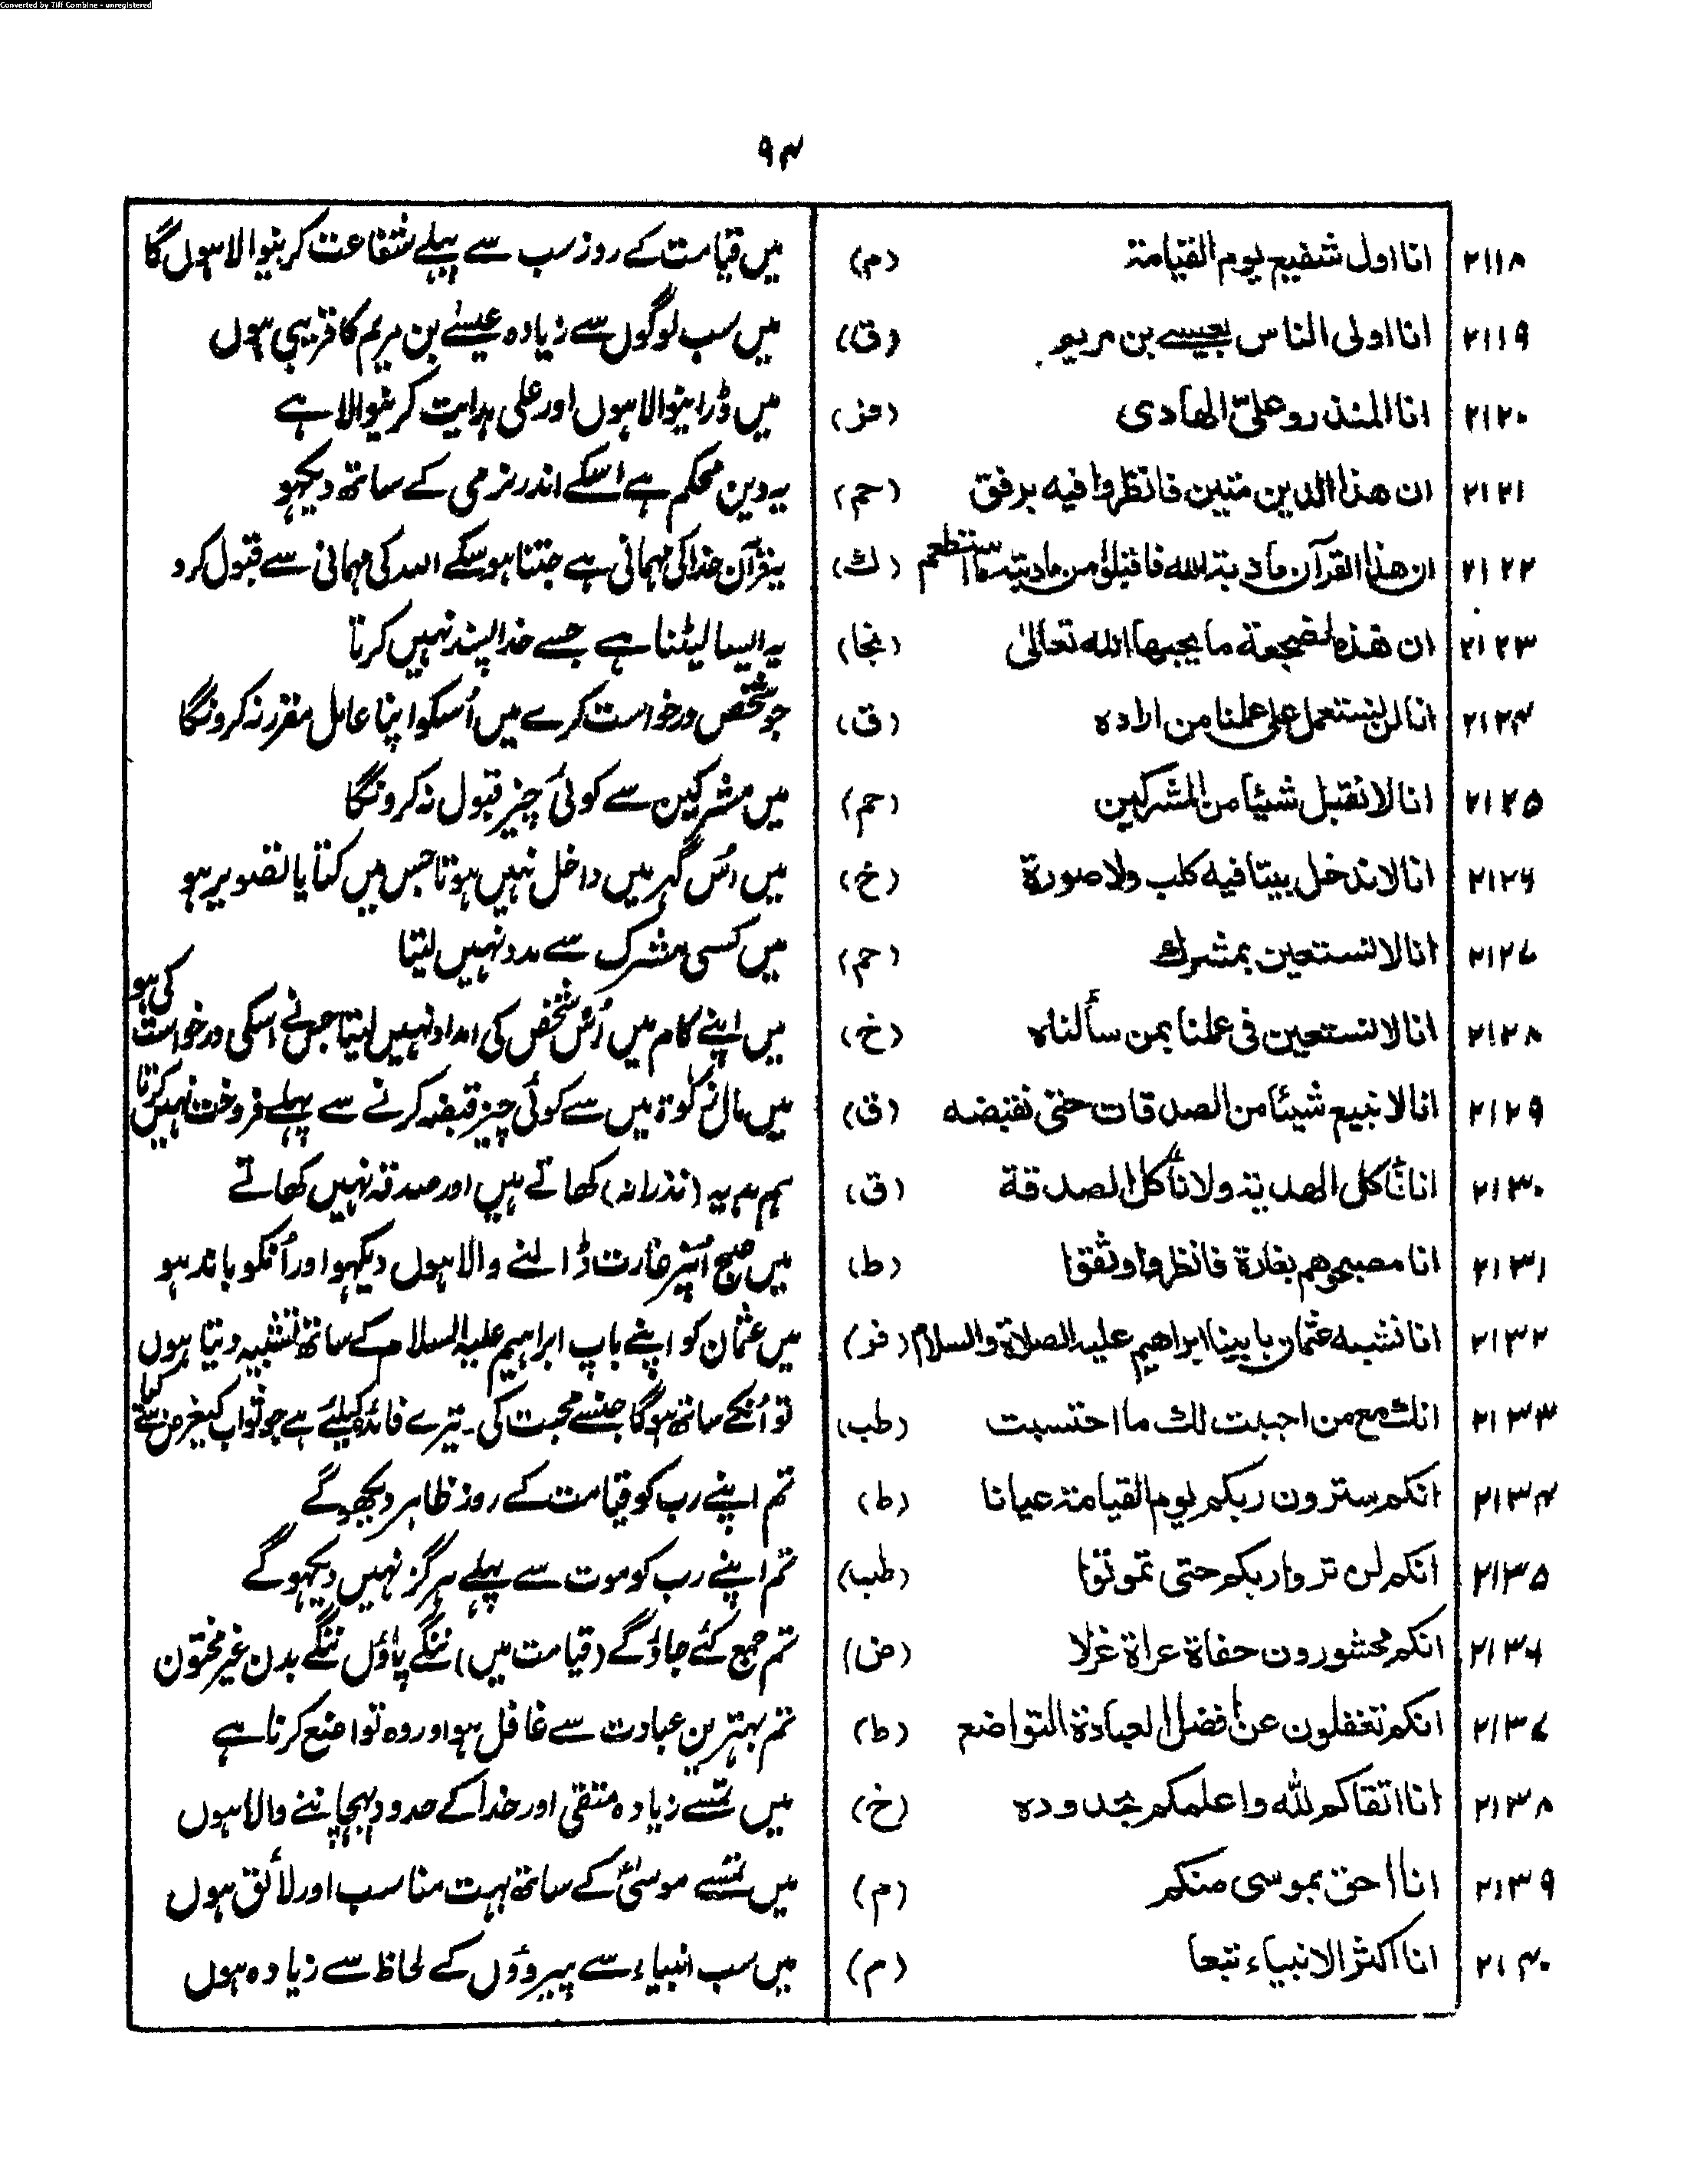 Converted by Tiff Combine - unregistered
۹۴
۲۱۱۸ انا اول شفیع یوم القیامة (م) میں قیامت کے روز سب سے پہلے شفاعت کرنیوالا ہوں گا
۲۱۱۹ انا اولی الناس بعیسے بن مریم (ق) میں سب لوگوں سے زیادہ عیسےٰ بن مریم کا قریبی ہوں
۲۱۲۰ انا المنذر و علیّ الهادی (فر) میں ڈرانیوالا ہوں اور علی ہدایت کرنیوالا ہے
۲۱۲۱ ان هذا الدین متین فانظروا فیه برفق (حم) یہ دین محکم ہے اسکے اندر نرمی کے ساتھ دیکھو
۲۱۲۲ ان هذا القرآن مأدبة الله فاقبلوا من مادبته ما استطعتم (ك) یہ قرآن خدا کی مہمانی ہے جتنا ہو سکے اللہ کی مہمانی سے قبول کرو
۲۱۲۳ ان هذه لضجعة ما یحبها الله تعالیٰ (نجا) یہ ایسا لیٹنا ہے جسے خدا پسند نہیں کرتا
۲۱۲۴ انا لن نستعمل علی عملنا من اراده (ق) جو شخص درخواست کرے میں اُسکو اپنا عامل مقرر نہ کرونگا
۲۱۲۵ انا لا نقبل شیئا من المشرکین (حم) میں مشرکین سے کوئی چیز قبول نہ کرونگا
۲۱۲۶ انا لا ندخل بیتا فیه کلب ولا صورة (خ) میں اُس گہر میں داخل نہیں ہوتا جس میں کتا یا تصویر ہو
۲۱۲۷ انا لا نستعین بمشرك (حم) میں کسی مشرک سے مدد نہیں لیتا
۲۱۲۸ انا لا نستعین فی عملنا بمن سألناه (خ) میں اپنے کام میں اُس شخص کی امداد نہیں لیتا جس نے اسکی درخواست کی ہو
۲۱۲۹ انا لا نبیع شیئا من الصدقات حتی نقبضه (ق) میں مال زکوٰة میں سے کوئی چیز قبضہ کرنے سے پہلے فروخت نہیں کرتا
۲۱۳۰ انا نأکل الهدیة ولا نأکل الصدقة (ق) ہم ہدیہ (نذرانہ) کھاتے ہیں اور صدقہ نہیں کھاتے
۲۱۳۱ انا مصبحوهم بغارة فانظروا وثقوا (ط) میں صبح اُنپر غارت ڈالنے والا ہوں دیکہو اور اُنکو باندہو
۲۱۳۲ انا نشبه عثمان بابینا ابراهیم علیه الصلاة والسلام (فر) میں عثمان کو اپنے باپ ابراہیم علیہ السلام کے ساتھ تشبیہ دیتا ہوں
۲۱۳۳ انك مع من احببت لك ما احتسبت (طب) تو اُنکے ساتھ ہوگا جنسے محبت کی۔ تیرے فائدہ کیلئے ہے جو ثواب کیغرض سے کیا
۲۱۳۴ انکم سترون ربکم یوم القیامة عیانا (ط) تم اپنے رب کو قیامت کے روز ظاہر دیکھوگے
۲۱۳۵ انکم لن تروا ربکم حتی تموتوا (طب) تم اپنے رب کو موت سے پہلے ہرگز نہیں دیکہوگے
۲۱۳۶ انکم محشورون حفاة عراة غرلا (ض) تم جمع کئے جاؤگے (قیامت میں) ننگے پاؤں ننگے بدن غیر مختون
۲۱۳۷ انکم تغفلون عن افضل العبادة التواضع (ط) تم بہترین عبادت سے غافل ہو اور وہ تواضع کرنا ہے
۲۱۳۸ انا اتقاکم لله واعلمکم بحدوده (خ) میں تمسے زیادہ متقی اور خدا کے حدود پہچاننے والا ہوں
۲۱۳۹ انا احق بموسی منکم (م) میں تمسے موسیٰؑ کے ساتھ بہت مناسب اور لائق ہوں
۲۱۴۰ انا اکثر الانبیاء تبعا (م) میں سب انبیاء سے پیروؤں کے لحاظ سے زیادہ ہوں